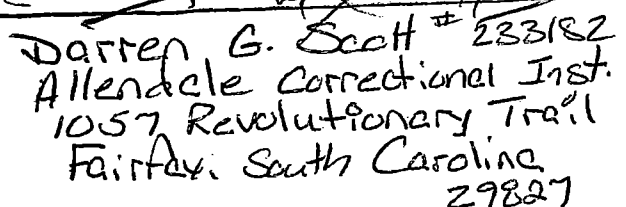 Darren G. Scott # 233182
Allendale Correctional Inst.
1057 Revolutionary Trail
Fairfax, South Carolina
29827